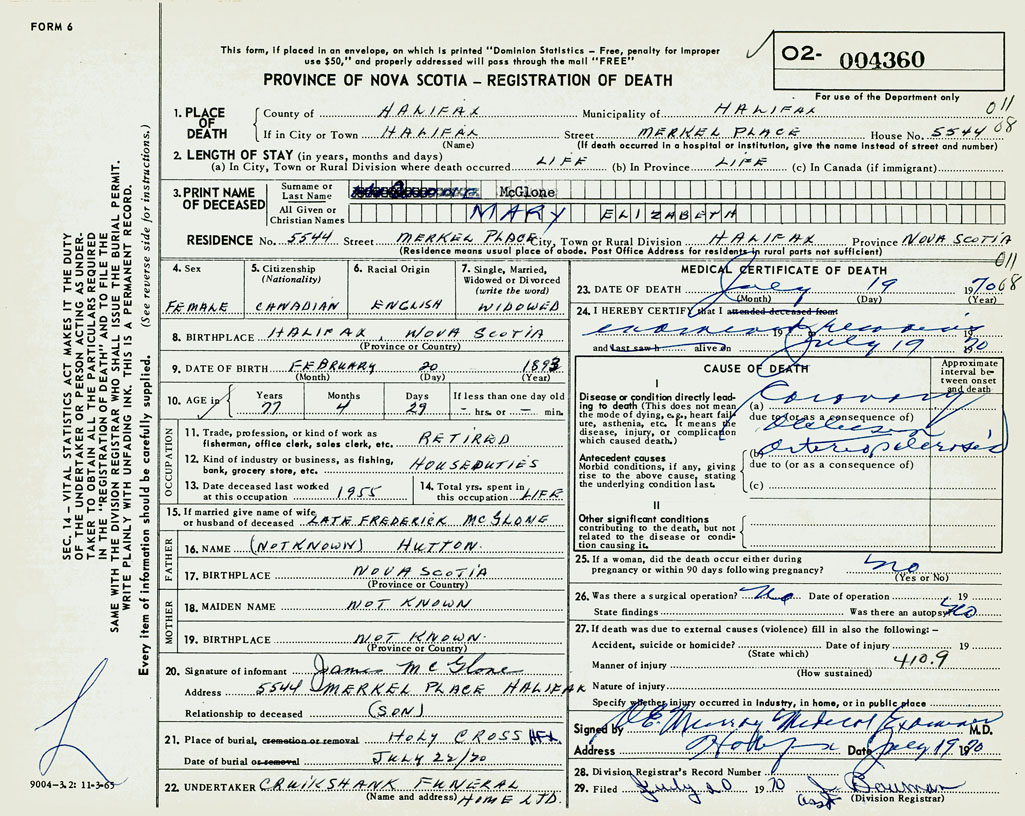 FORM 6
This form, if placed in an envelope, on which is printed "Dominion Statistics – Free, penalty for improper
use $50," and properly addressed will pass through the mail "FREE"
PROVINCE OF NOVA SCOTIA – REGISTRATION OF DEATH
O2- 004360
For use of the Department only
011
08
1. PLACE OF DEATH
County of HALIFAX Municipality of HALIFAX
If in City or Town HALIFAX Street MERKEL PLACE House No. 5544
(Name) (If death occurred in a hospital or institution, give the name instead of street and number)
2. LENGTH OF STAY (in years, months and days)
(a) In City, Town or Rural Division where death occurred LIFE (b) In Province LIFE (c) In Canada (if immigrant)
3. PRINT NAME OF DECEASED
Surname or Last Name McGlone
All Given or Christian Names MARY ELIZABETH
RESIDENCE No. 5544 Street MERKEL PLACE City, Town or Rural Division HALIFAX Province NOVA SCOTIA
(Residence means usual place of abode. Post Office Address for residents in rural parts not sufficient)
011
08
4. Sex
FEMALE
5. Citizenship
(Nationality)
CANADIAN
6. Racial Origin
ENGLISH
7. Single, Married,
Widowed or Divorced
(write the word)
WIDOWED
8. BIRTHPLACE HALIFAX, NOVA SCOTIA
(Province or Country)
9. DATE OF BIRTH FEBRUARY 20 1893
(Month) (Day) (Year)
10. AGE in
Years Months Days If less than one day old
77 4 29 – hrs. or – min.
OCCUPATION
11. Trade, profession, or kind of work as
fisherman, office clerk, sales clerk, etc. RETIRED
12. Kind of industry or business, as fishing,
bank, grocery store, etc. HOUSEDUTIES
13. Date deceased last worked
at this occupation 1955
14. Total yrs. spent in
this occupation LIFE
15. If married give name of wife
or husband of deceased LATE FREDERICK MCGLONE
FATHER
16. NAME (NOT KNOWN) HUTTON
17. BIRTHPLACE NOVA SCOTIA
(Province or Country)
MOTHER
18. MAIDEN NAME NOT KNOWN
19. BIRTHPLACE NOT KNOWN
(Province or Country)
20. Signature of informant James McGlone
Address 5544 MERKEL PLACE HALIFAX
Relationship to deceased (SON)
21. Place of burial, cremation or removal HOLY CROSS HFX.
Date of burial or removal JULY 22/70
22. UNDERTAKER CRUIKSHANK FUNERAL
(Name and address) HOME LTD.
MEDICAL CERTIFICATE OF DEATH
23. DATE OF DEATH July 19 1970
(Month) (Day) (Year)
24. I HEREBY CERTIFY that I attended deceased from
examined remains
and last saw h alive on July 19 1970
CAUSE OF DEATH
Approximate
interval be-
tween onset
and death
I
Disease or condition directly lead-
ing to death (This does not mean
the mode of dying, e.g., heart fail-
ure, asthenia, etc. It means the
disease, injury, or complication
which caused death.)
(a) Coronary
due to (or as a consequence of)
Antecedent causes
Morbid conditions, if any, giving
rise to the above cause, stating
the underlying condition last.
(b) Arteriosclerosis
due to (or as a consequence of)
(c)
II
Other significant conditions
contributing to the death, but not
related to the disease or condi-
tion causing it.
25. If a woman, did the death occur either during
pregnancy or within 90 days following pregnancy? No
(Yes or No)
26. Was there a surgical operation? No Date of operation 19
State findings Was there an autopsy No
27. If death was due to external causes (violence) fill in also the following: –
Accident, suicide or homicide? Date of injury 19
(State which)
410.9
Manner of injury
(How sustained)
Nature of injury
Specify whether injury occurred in Industry, in home, or in public place
Signed by D.E. Murray Medical Examiner M.D.
Address Halifax Date July 19 1970
28. Division Registrar's Record Number
29. Filed July 20 1970 J. Bowman
Asst (Division Registrar)
SEC. 14 – VITAL STATISTICS ACT MAKES IT THE DUTY
OF THE UNDERTAKER OR PERSON ACTING AS UNDER-
TAKER TO OBTAIN ALL THE PARTICULARS REQUIRED
IN THE "REGISTRATION OF DEATH" AND TO FILE THE
SAME WITH THE DIVISION REGISTRAR WHO SHALL ISSUE THE BURIAL PERMIT.
WRITE PLAINLY WITH UNFADING INK. THIS IS A PERMANENT RECORD.
Every item of information should be carefully supplied. (See reverse side for instructions.)
9004-3.2: 11-3-65